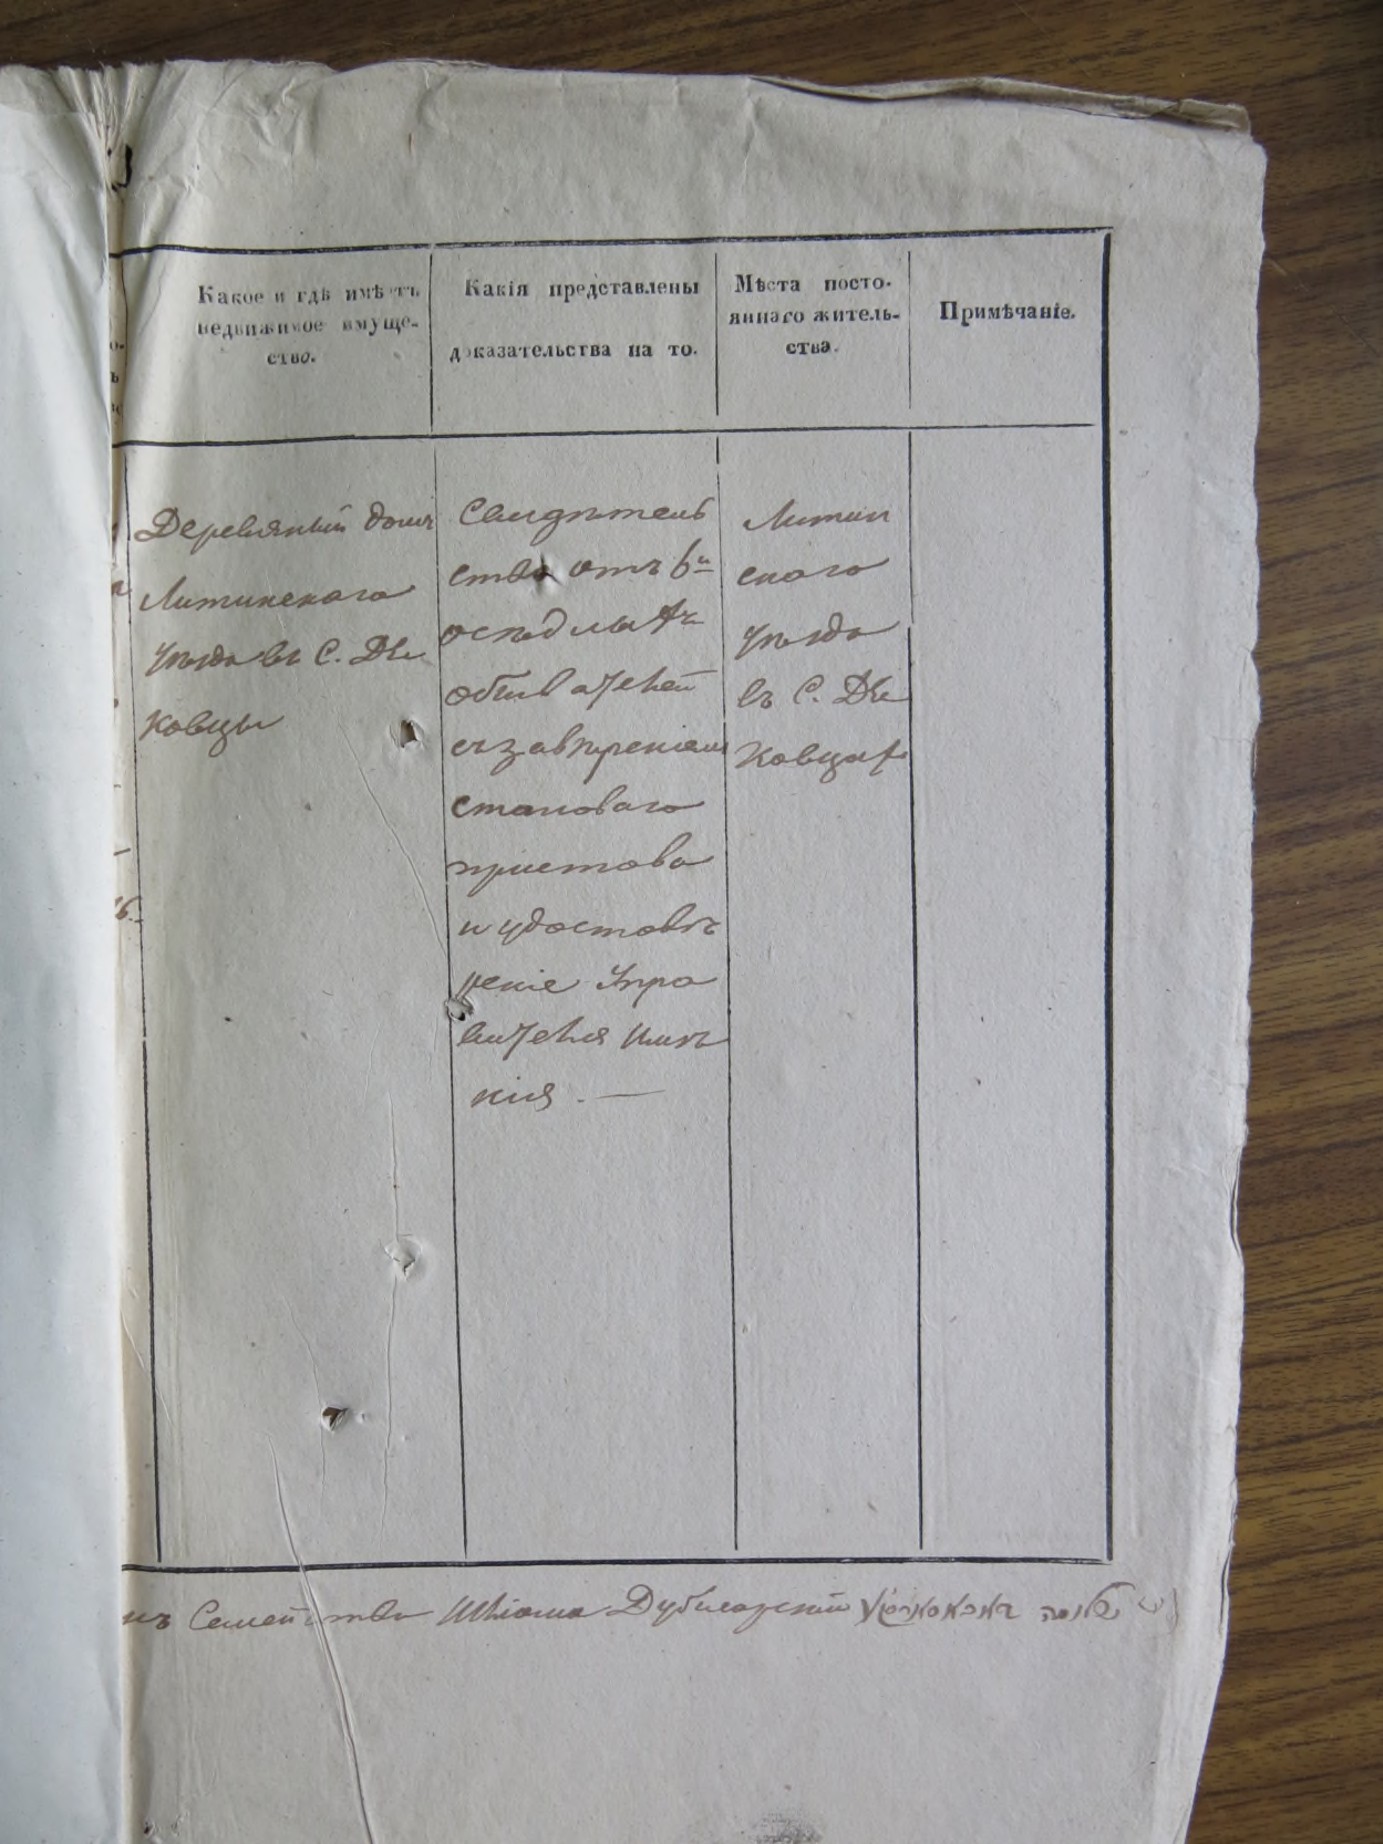 Какое и гдѣ имѣетъ
недвижимое имуще-
ство.
Какія представлены
доказательства на то.
Мѣста посто-
яннаго житель-
ства.
Примѣчаніе.
Деревяный домъ
Литинскаго
уѣзда въ С. Дья
ковцы
Свидѣтель
ство отъ 6и
осѣдлыхъ
обывателей
съ завѣреніемъ
становаго
пристава
и удостовѣ
реніе Упра
вителя имѣ
нія. —
Литин
скаго
уѣзда
въ С. Дья
ковцах
Семейства Шлiома